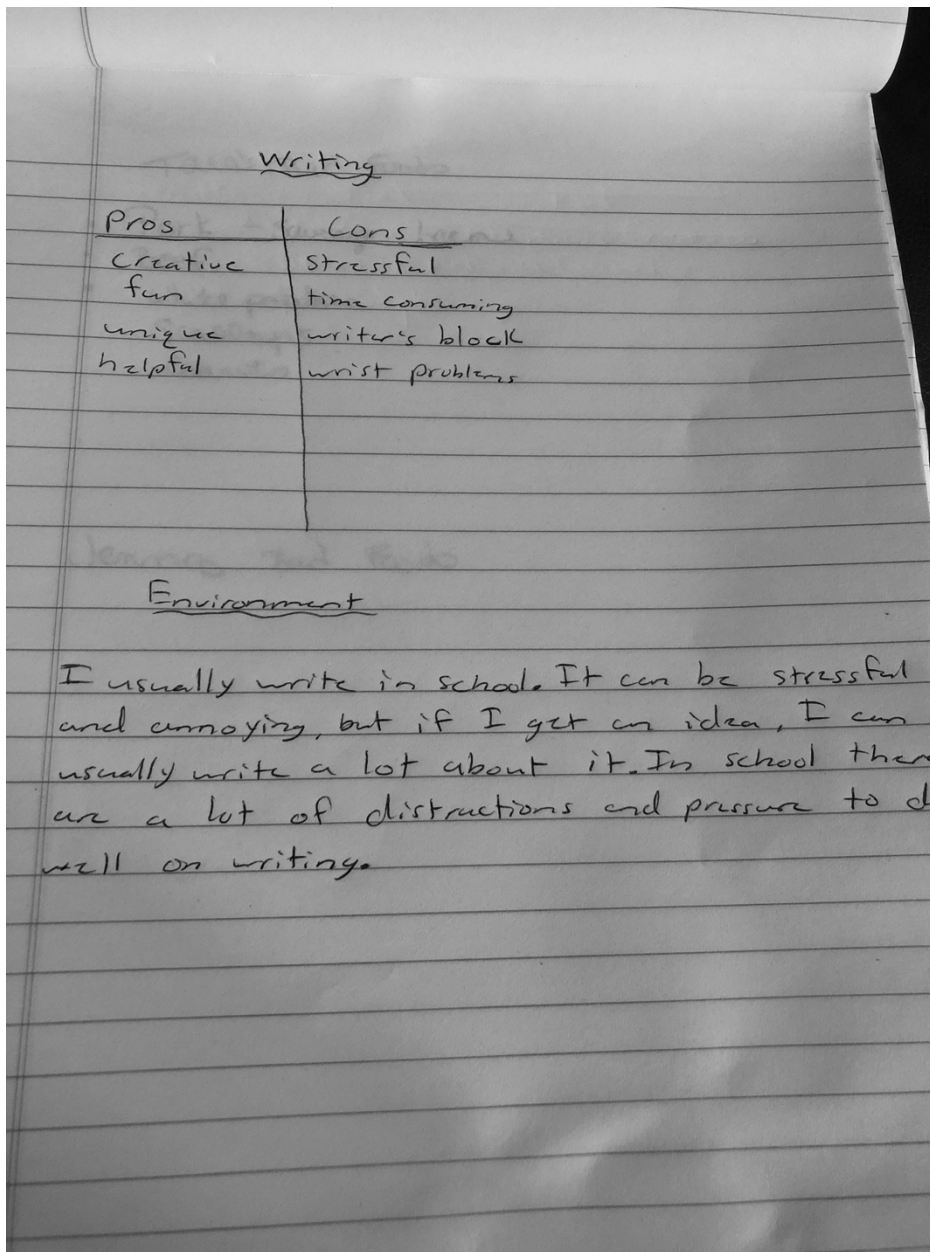 Writing
Pros Cons
creative stressful
fun time consuming
unique writer's block
helpful wrist problems
Environment
I usually write in school. It can be stressful
and annoying, but if I get an idea, I can
usually write a lot about it. In school ther
are a lot of distractions and pressure to d
well on writing.